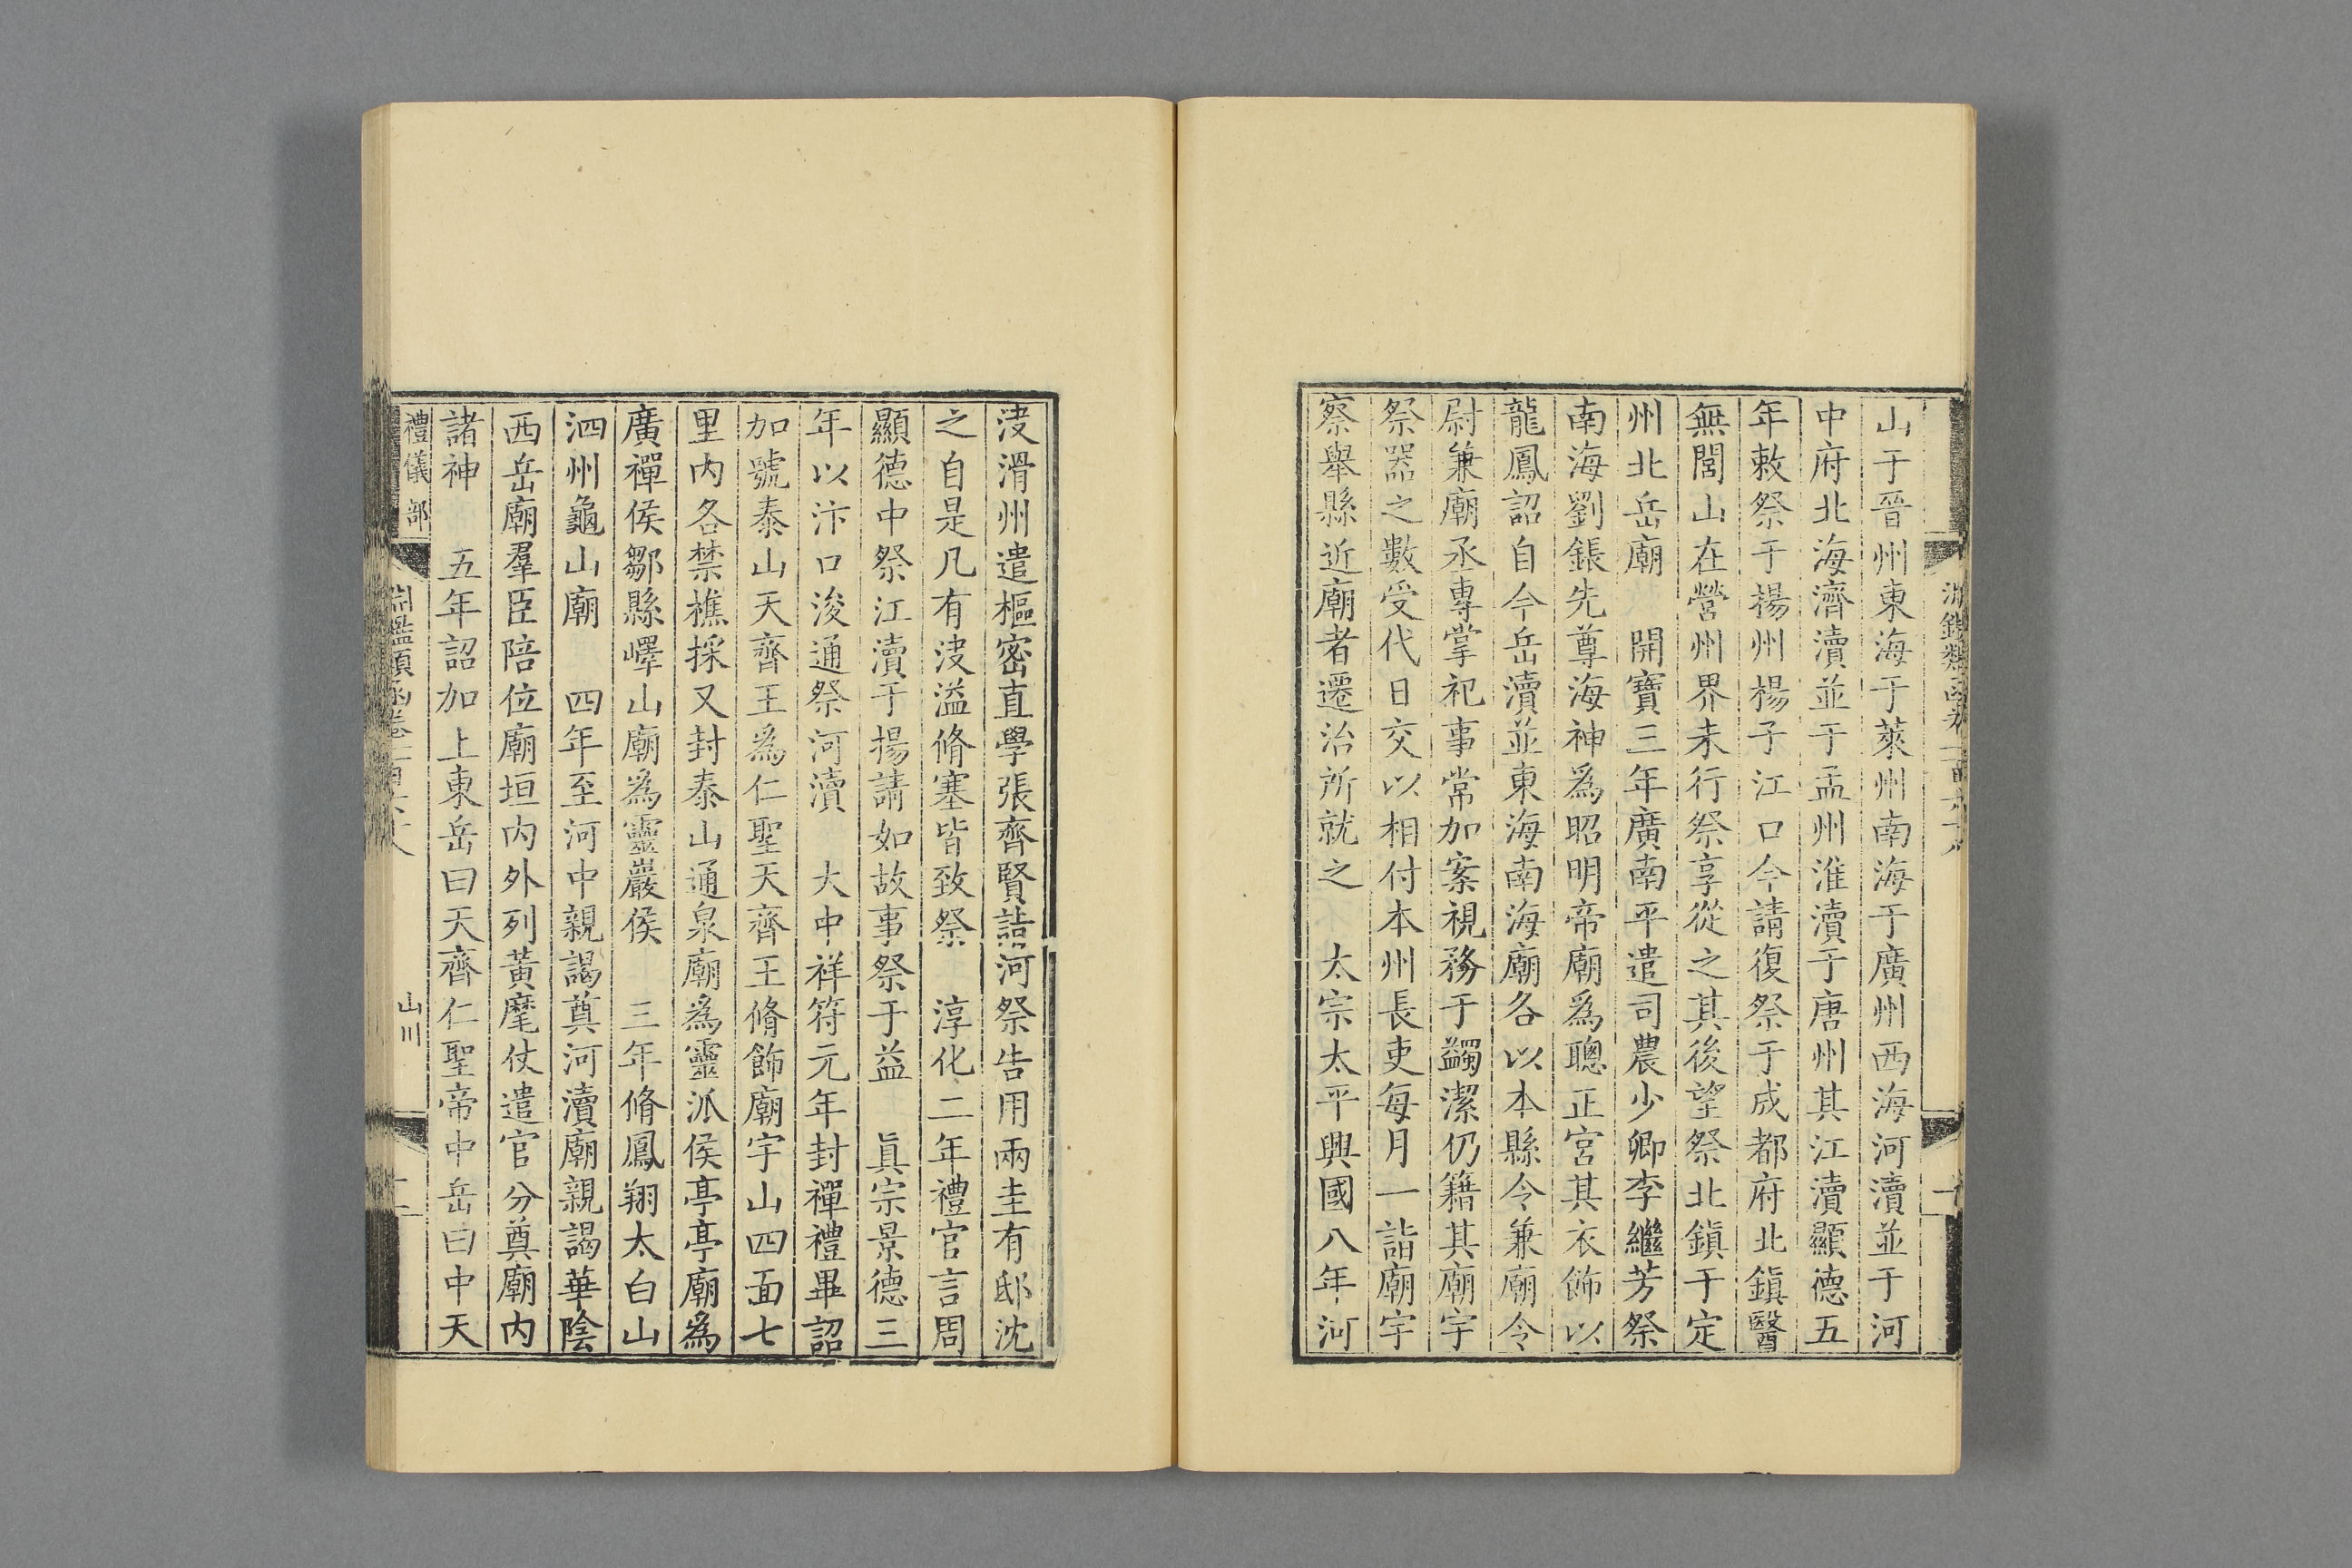 山于晉州東海于萊州南海于廣州西海河瀆並于河
中府北海濟瀆並于孟州淮瀆于唐州其江瀆顯德五
年敕祭于揚州楊子江口今請復祭于成都府北鎮醫
無閭山在營州界未行祭享從之其後望祭北鎮于定
州北岳廟　開寶三年廣南平遣司農少卿李繼芳祭
南海劉鋹先尊海神爲昭明帝廟爲聰正宮其衣飾以
龍鳳詔自今岳瀆並東海南海廟各以本縣令兼廟令
尉兼廟丞專掌祀事常加案視務于蠲潔仍籍其廟宇
祭器之數受代日交以相付本州長吏每月一詣廟宇
察舉縣近廟者遷治所就之　太宗太平興國八年河
決滑州遣樞密直學張齊賢詣河祭告用兩圭有邸沈
之自是凡有決溢脩塞皆致祭　淳化二年禮官言周
顯德中祭江瀆于揚請如故事祭于益　眞宗景德三
年以汴口浚通祭河瀆　大中祥符元年封禪禮畢詔
加號泰山天齊王爲仁聖天齊王脩飾廟宇山四面七
里內各禁樵採又封泰山通泉廟爲靈派侯亭亭廟爲
廣禪侯鄒縣嶧山廟爲靈巖侯　三年脩鳳翔太白山
泗州龜山廟　四年至河中親謁奠河瀆廟親謁華陰
西岳廟羣臣陪位廟垣內外列黃麾仗遣官分奠廟內
諸神　五年詔加上東岳曰天齊仁聖帝中岳曰中天
禮儀部
山川